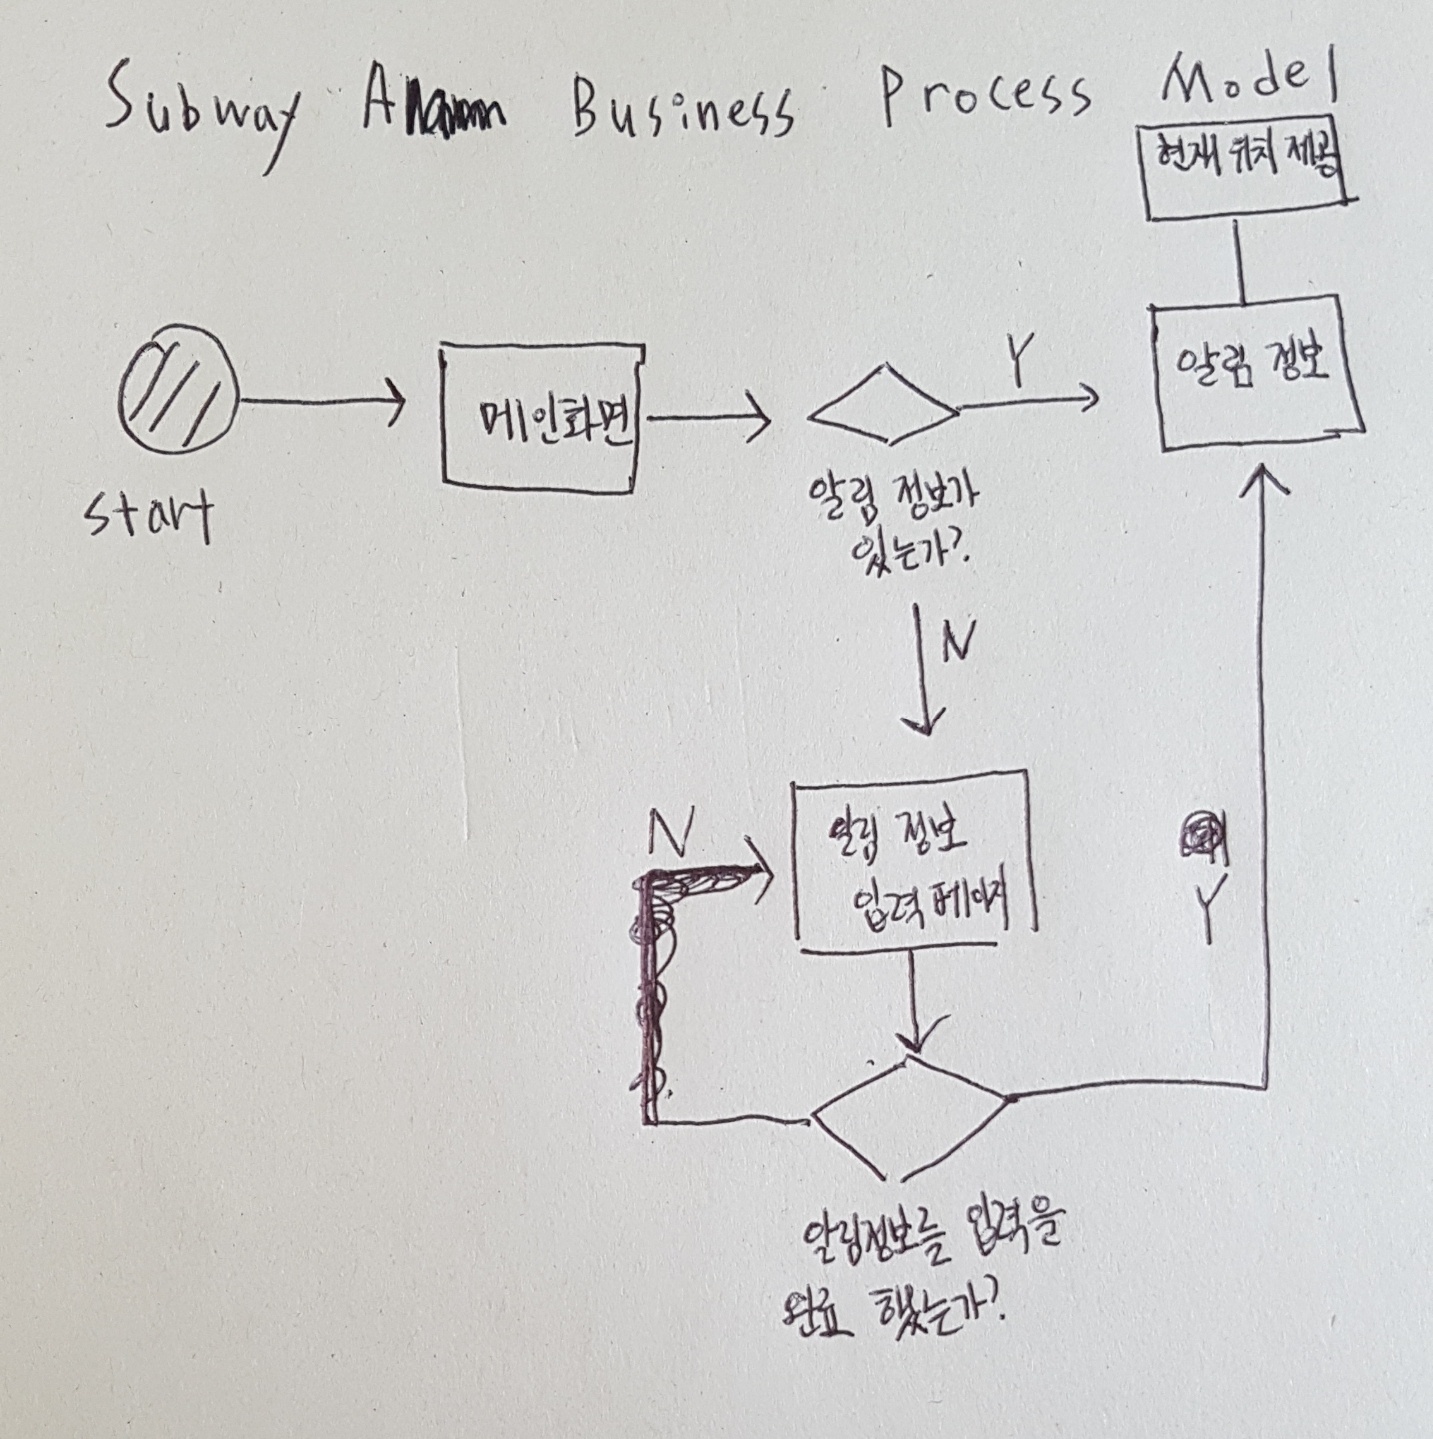 Subway Alarm Business Process Model
현재 위치 제공
start
메인화면
알림 정보가
있는가?
Y
알림 정보
N
알림 정보
입력 페이지
N
Y
알림정보를 입력을
완료 했는가?